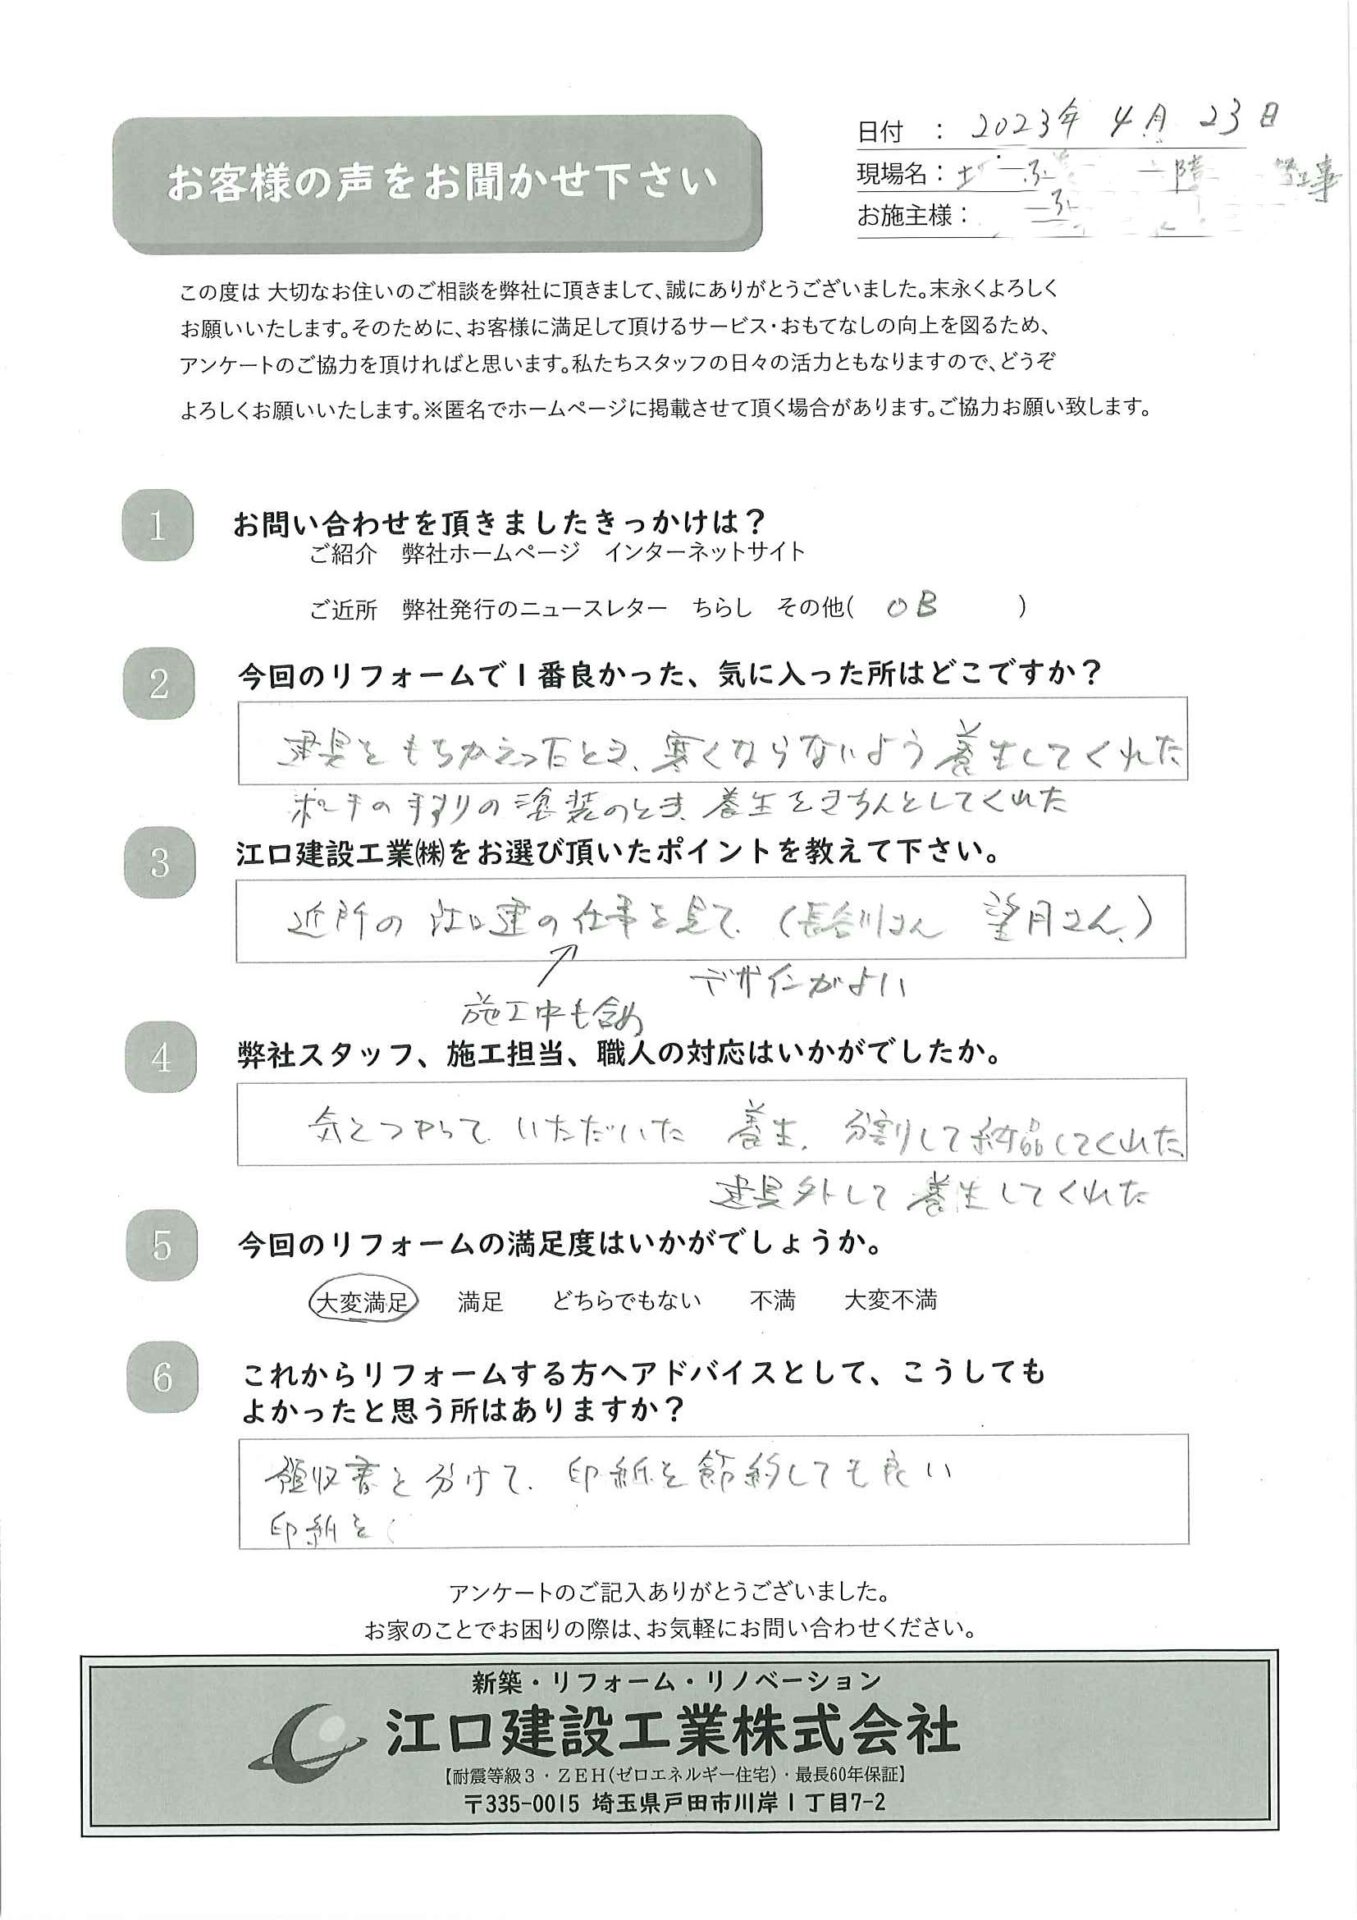 お客様の声をお聞かせ下さい
日付 : 2023年 4月 23日
現場名: 工事
お施主様:
この度は 大切なお住いのご相談を弊社に頂きまして、誠にありがとうございました。末永くよろしく
お願いいたします。そのために、お客様に満足して頂けるサービス・おもてなしの向上を図るため、
アンケートのご協力を頂ければと思います。私たちスタッフの日々の活力ともなりますので、どうぞ
よろしくお願いいたします。※匿名でホームページに掲載させて頂く場合があります。ご協力お願い致します。
1 お問い合わせを頂きましたきっかけは?
ご紹介 弊社ホームページ インターネットサイト
ご近所 弊社発行のニュースレター ちらし その他( OB )
2 今回のリフォームで1番良かった、気に入った所はどこですか?
建具をもちかえったとき、寒くならないよう養生してくれた
ポーチの手すりの塗装のとき、養生をきちんとしてくれた
3 江口建設工業㈱をお選び頂いたポイントを教えて下さい。
近所の江口建の仕事を見て、(長谷川さん 望月さん、)
デザインがよい
施工中も含め
4 弊社スタッフ、施工担当、職人の対応はいかがでしたか。
気をつかって いただいた 養生、分割りして納品してくれた、
建具外して養生してくれた
5 今回のリフォームの満足度はいかがでしょうか。
大変満足 満足 どちらでもない 不満 大変不満
6 これからリフォームする方へアドバイスとして、こうしても
よかったと思う所はありますか?
領収書を分けて、印紙を節約しても良い
印紙を
アンケートのご記入ありがとうございました。
お家のことでお困りの際は、お気軽にお問い合わせください。
新築・リフォーム・リノベーション
江口建設工業株式会社
【耐震等級3・ZEH(ゼロエネルギー住宅)・最長60年保証】
〒335-0015 埼玉県戸田市川岸1丁目7-2